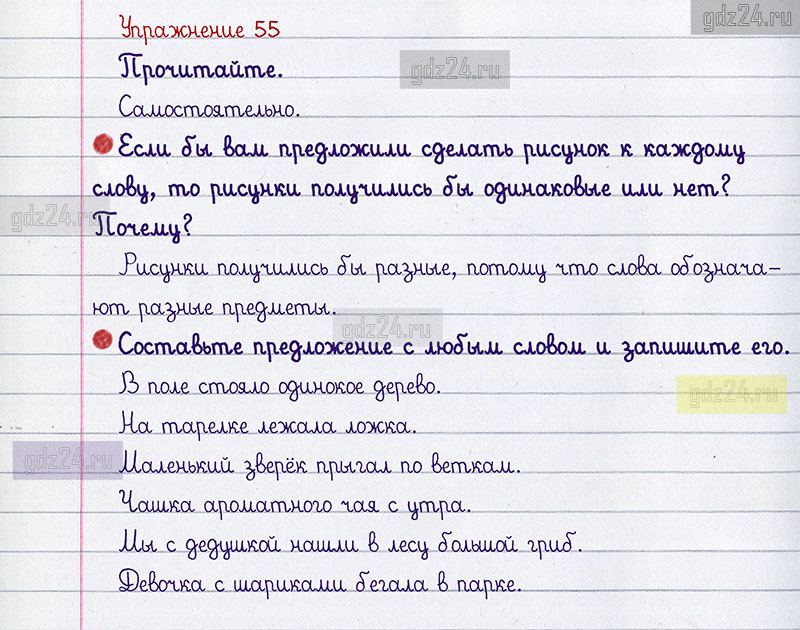 gdz24.ru
Упражнение 55
Прочитайте.
gdz24.ru
Самостоятельно.
Если бы вам предложили сделать рисунок к каждому
слову, то рисунки получились бы одинаковые или нет?
gdz24.ru
Почему?
Рисунки получились бы разные, потому что слова обознача-
ют разные предметы.
gdz24.ru
Составьте предложение с любым словом и запишите его.
В поле стояло одинокое дерево.
gdz24.ru
На тарелке лежала ложка.
gdz24.ru
Маленький зверёк прыгал по веткам.
Чашка ароматного чая с утра.
Мы с дедушкой нашли в лесу большой гриб.
Девочка с шариками бегала в парке.